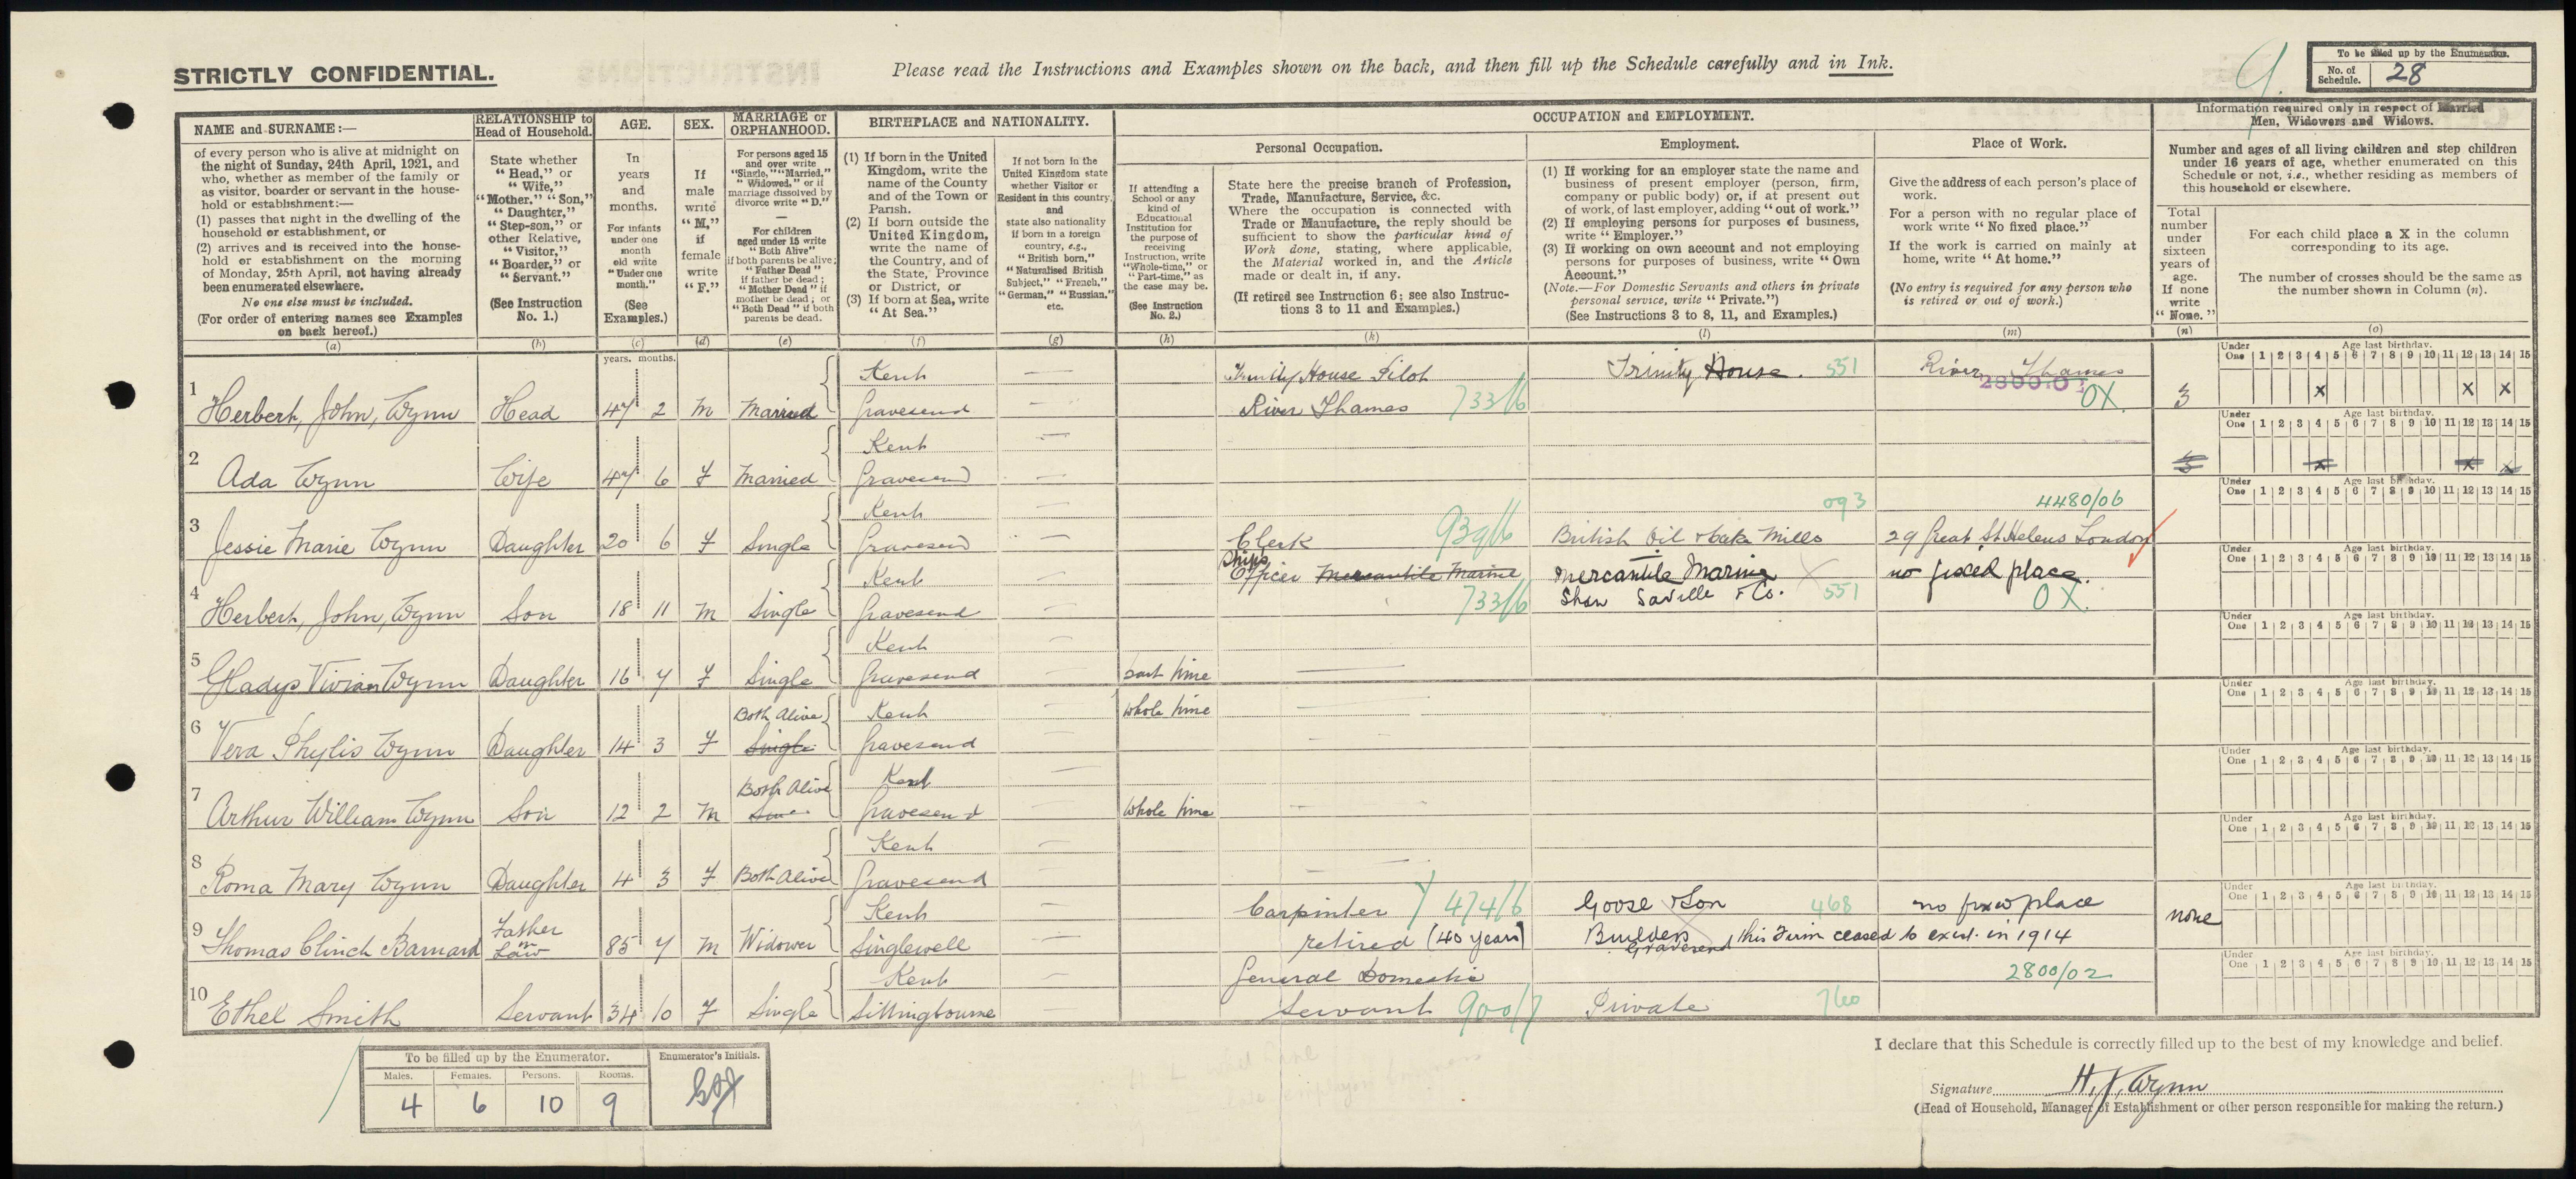 STRICTLY CONFIDENTIAL.
Please read the Instructions and Examples shown on the back, and then fill up the Schedule carefully and in Ink.
To be filled up by the Enumerator.
No. of Schedule. 28
9
NAME and SURNAME:—
of every person who is alive at midnight on
the night of Sunday, 24th April, 1921, and
who, whether as member of the family or
as visitor, boarder or servant in the house-
hold or establishment:—
(1) passes that night in the dwelling of the
household or establishment, or
(2) arrives and is received into the house-
hold or establishment on the morning
of Monday, 25th April, not having already
been enumerated elsewhere.
No one else must be included.
(For order of entering names see Examples
on back hereof.)
(a)
RELATIONSHIP to
Head of Household.
State whether
"Head," or
"Wife,"
"Mother," "Son,"
"Daughter,"
"Step-son," or
other Relative,
"Visitor,"
"Boarder," or
"Servant."
(See Instruction
No. 1.)
(b)
AGE.
In
years
and
months.
For infants
under one
month
old write
"Under one
month."
(See
Examples.)
(c)
years. months.
SEX.
If
male
write
"M,"
if
female
write
"F."
(d)
MARRIAGE or
ORPHANHOOD.
For persons aged 15
and over write
"Single," "Married,"
"Widowed," or if
marriage dissolved by
divorce write "D."
—
For children
aged under 15 write
"Both Alive"
if both parents be alive;
"Father Dead"
if father be dead;
"Mother Dead" if
mother be dead; or
"Both Dead" if both
parents be dead.
(e)
BIRTHPLACE and NATIONALITY.
(1) If born in the United
Kingdom, write the
name of the County
and of the Town or
Parish.
(2) If born outside the
United Kingdom,
write the name of
the Country, and of
the State, Province
or District, or
(3) If born at Sea, write
"At Sea."
(f)
If not born in the
United Kingdom state
whether Visitor or
Resident in this country,
and
state also nationality
if born in a foreign
country, e.g.,
"British born,"
"Naturalised British
Subject," "French,"
"German," "Russian,"
etc.
(g)
OCCUPATION and EMPLOYMENT.
If attending a
School or any
kind of
Educational
Institution for
the purpose of
receiving
Instruction, write
"Whole-time," or
"Part-time," as
the case may be.
(See Instruction
No. 2.)
(h)
Personal Occupation.
State here the precise branch of Profession,
Trade, Manufacture, Service, &c.
Where the occupation is connected with
Trade or Manufacture, the reply should be
sufficient to show the particular kind of
Work done, stating, where applicable,
the Material worked in, and the Article
made or dealt in, if any.
(If retired see Instruction 6; see also Instruc-
tions 3 to 11 and Examples.)
(k)
Employment.
(1) If working for an employer state the name and
business of present employer (person, firm,
company or public body) or, if at present out
of work, of last employer, adding "out of work."
(2) If employing persons for purposes of business,
write "Employer."
(3) If working on own account and not employing
persons for purposes of business, write "Own
Account."
(Note.—For Domestic Servants and others in private
personal service, write "Private.")
(See Instructions 3 to 8, 11, and Examples.)
(l)
Place of Work.
Give the address of each person's place of
work.
For a person with no regular place of
work write "No fixed place."
If the work is carried on mainly at
home, write "At home."
(No entry is required for any person who
is retired or out of work.)
(m)
Information required only in respect of Married
Men, Widowers and Widows.
Number and ages of all living children and step children
under 16 years of age, whether enumerated on this
Schedule or not, i.e., whether residing as members of
this household or elsewhere.
Total
number
under
sixteen
years of
age.
If none
write
"None."
(n)
For each child place a X in the column
corresponding to its age.
The number of crosses should be the same as
the number shown in Column (n).
(o)
Under One Age last birthday. 1 2 3 4 5 6 7 8 9 10 11 12 13 14 15
1 Herbert, John, Wynn Head 47 2 M Married Kent Gravesend Trinity House Pilot River Thames 733/6 Trinity House. 551 River Thames 2800.02 OX 3 x x x
2 Ada Wynn Wife 47 6 F Married Kent Gravesend 3 x x x
3 Jessie Marie Wynn Daughter 20 6 F Single Kent Gravesend Clerk 939/6 British Oil & Cake Mills 093 29 Great St Helens London 4480/06
4 Herbert, John, Wynn Son 18 11 M Single Kent Gravesend Ships Officer Mercantile Marine 733/6 Mercantile Marine Shaw Saville & Co. 551 no fixed place. OX.
5 Gladys Vivian Wynn Daughter 16 7 F Single Kent Gravesend part time
6 Vera Phylis Wynn Daughter 14 3 F Both Alive Single Kent Gravesend whole time
7 Arthur William Wynn Son 12 2 M Both Alive Kent Gravesend whole time
8 Roma Mary Wynn Daughter 4 3 F Both Alive Kent Gravesend
9 Thomas Clinch Barnard Father in Law 85 7 M Widower Kent Singlewell Carpinter retired (40 years) 474/6 Goose & Son Builders Gravesend 468 no fixed place this Firm ceased to exist in 1914 none
10 Ethel Smith Servant 34 10 F Single Kent Sittingbourne General Domestic Servant 900/7 Private 760 2800/02
To be filled up by the Enumerator.
Males. Females. Persons. Rooms.
4 6 10 9
Enumerator's Initials.
I declare that this Schedule is correctly filled up to the best of my knowledge and belief.
Signature H. J. Wynn
(Head of Household, Manager of Establishment or other person responsible for making the return.)